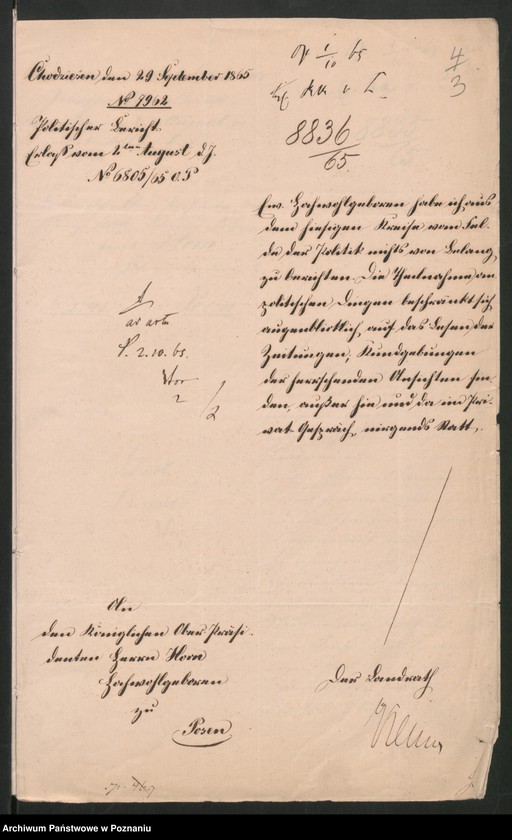 Chodziesen den 29 September 1865
No 7962
Politischer Bericht
Erlaß vom 2ten August d. J.
No 6805/65 O. P
pr 1/10 65
4
3
8836
65.
Ew. Hochwohlgeboren habe ich aus
dem hiesigen Kreise vom Fel-
de der Politik nichts von Belang
zu berichten. Die Theilnahme an
politischen Dingen beschränkt sich
augenblicklich auf das Lesen der
Zeitungen, Kundgebungen
der herrschenden Ansichten fin-
den, außer hie und da im Pri-
vat Gespräch, nirgends statt.
ad acta
P. 2.10.65.
An
den Königlichen Ober Präsi-
denten Herrn Horn
Hochwohlgeboren
zu
Posen
Der Landrath
Archiwum Państwowe w Poznaniu